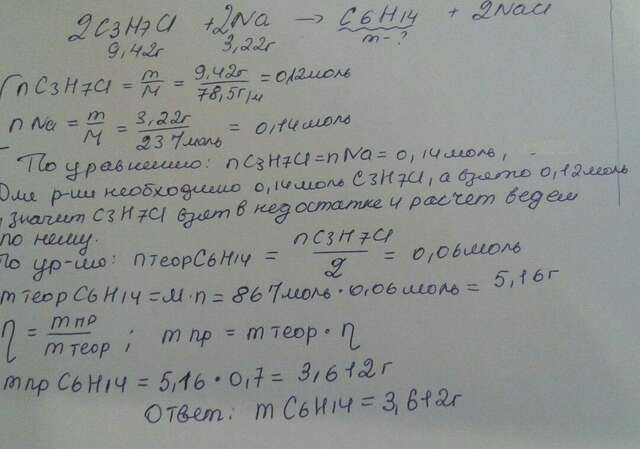 2C3H7Cl + 2Na → C6H14 + 2NaCl
9,42г 3,22г m-?
n C3H7Cl = m/M = 9,42г/78,5г/м = 0,12моль
n Na = m/M = 3,22г/23г/моль = 0,14моль
По уравнению: nC3H7Cl = nNa = 0,14моль,
Для р-ии необходимо 0,14моль C3H7Cl, а взято 0,12моль
, значит C3H7Cl взят в недостатке и расчет ведем
по нему.
По ур-ию: nтеорC6H14 = nC3H7Cl/2 = 0,06моль
mтеорC6H14 = M·n = 86г/моль·0,06моль = 5,16г
η = mпр/mтеор; mпр = mтеор·η
mпрC6H14 = 5,16·0,7 = 3,612г
Ответ: mC6H14 = 3,612г